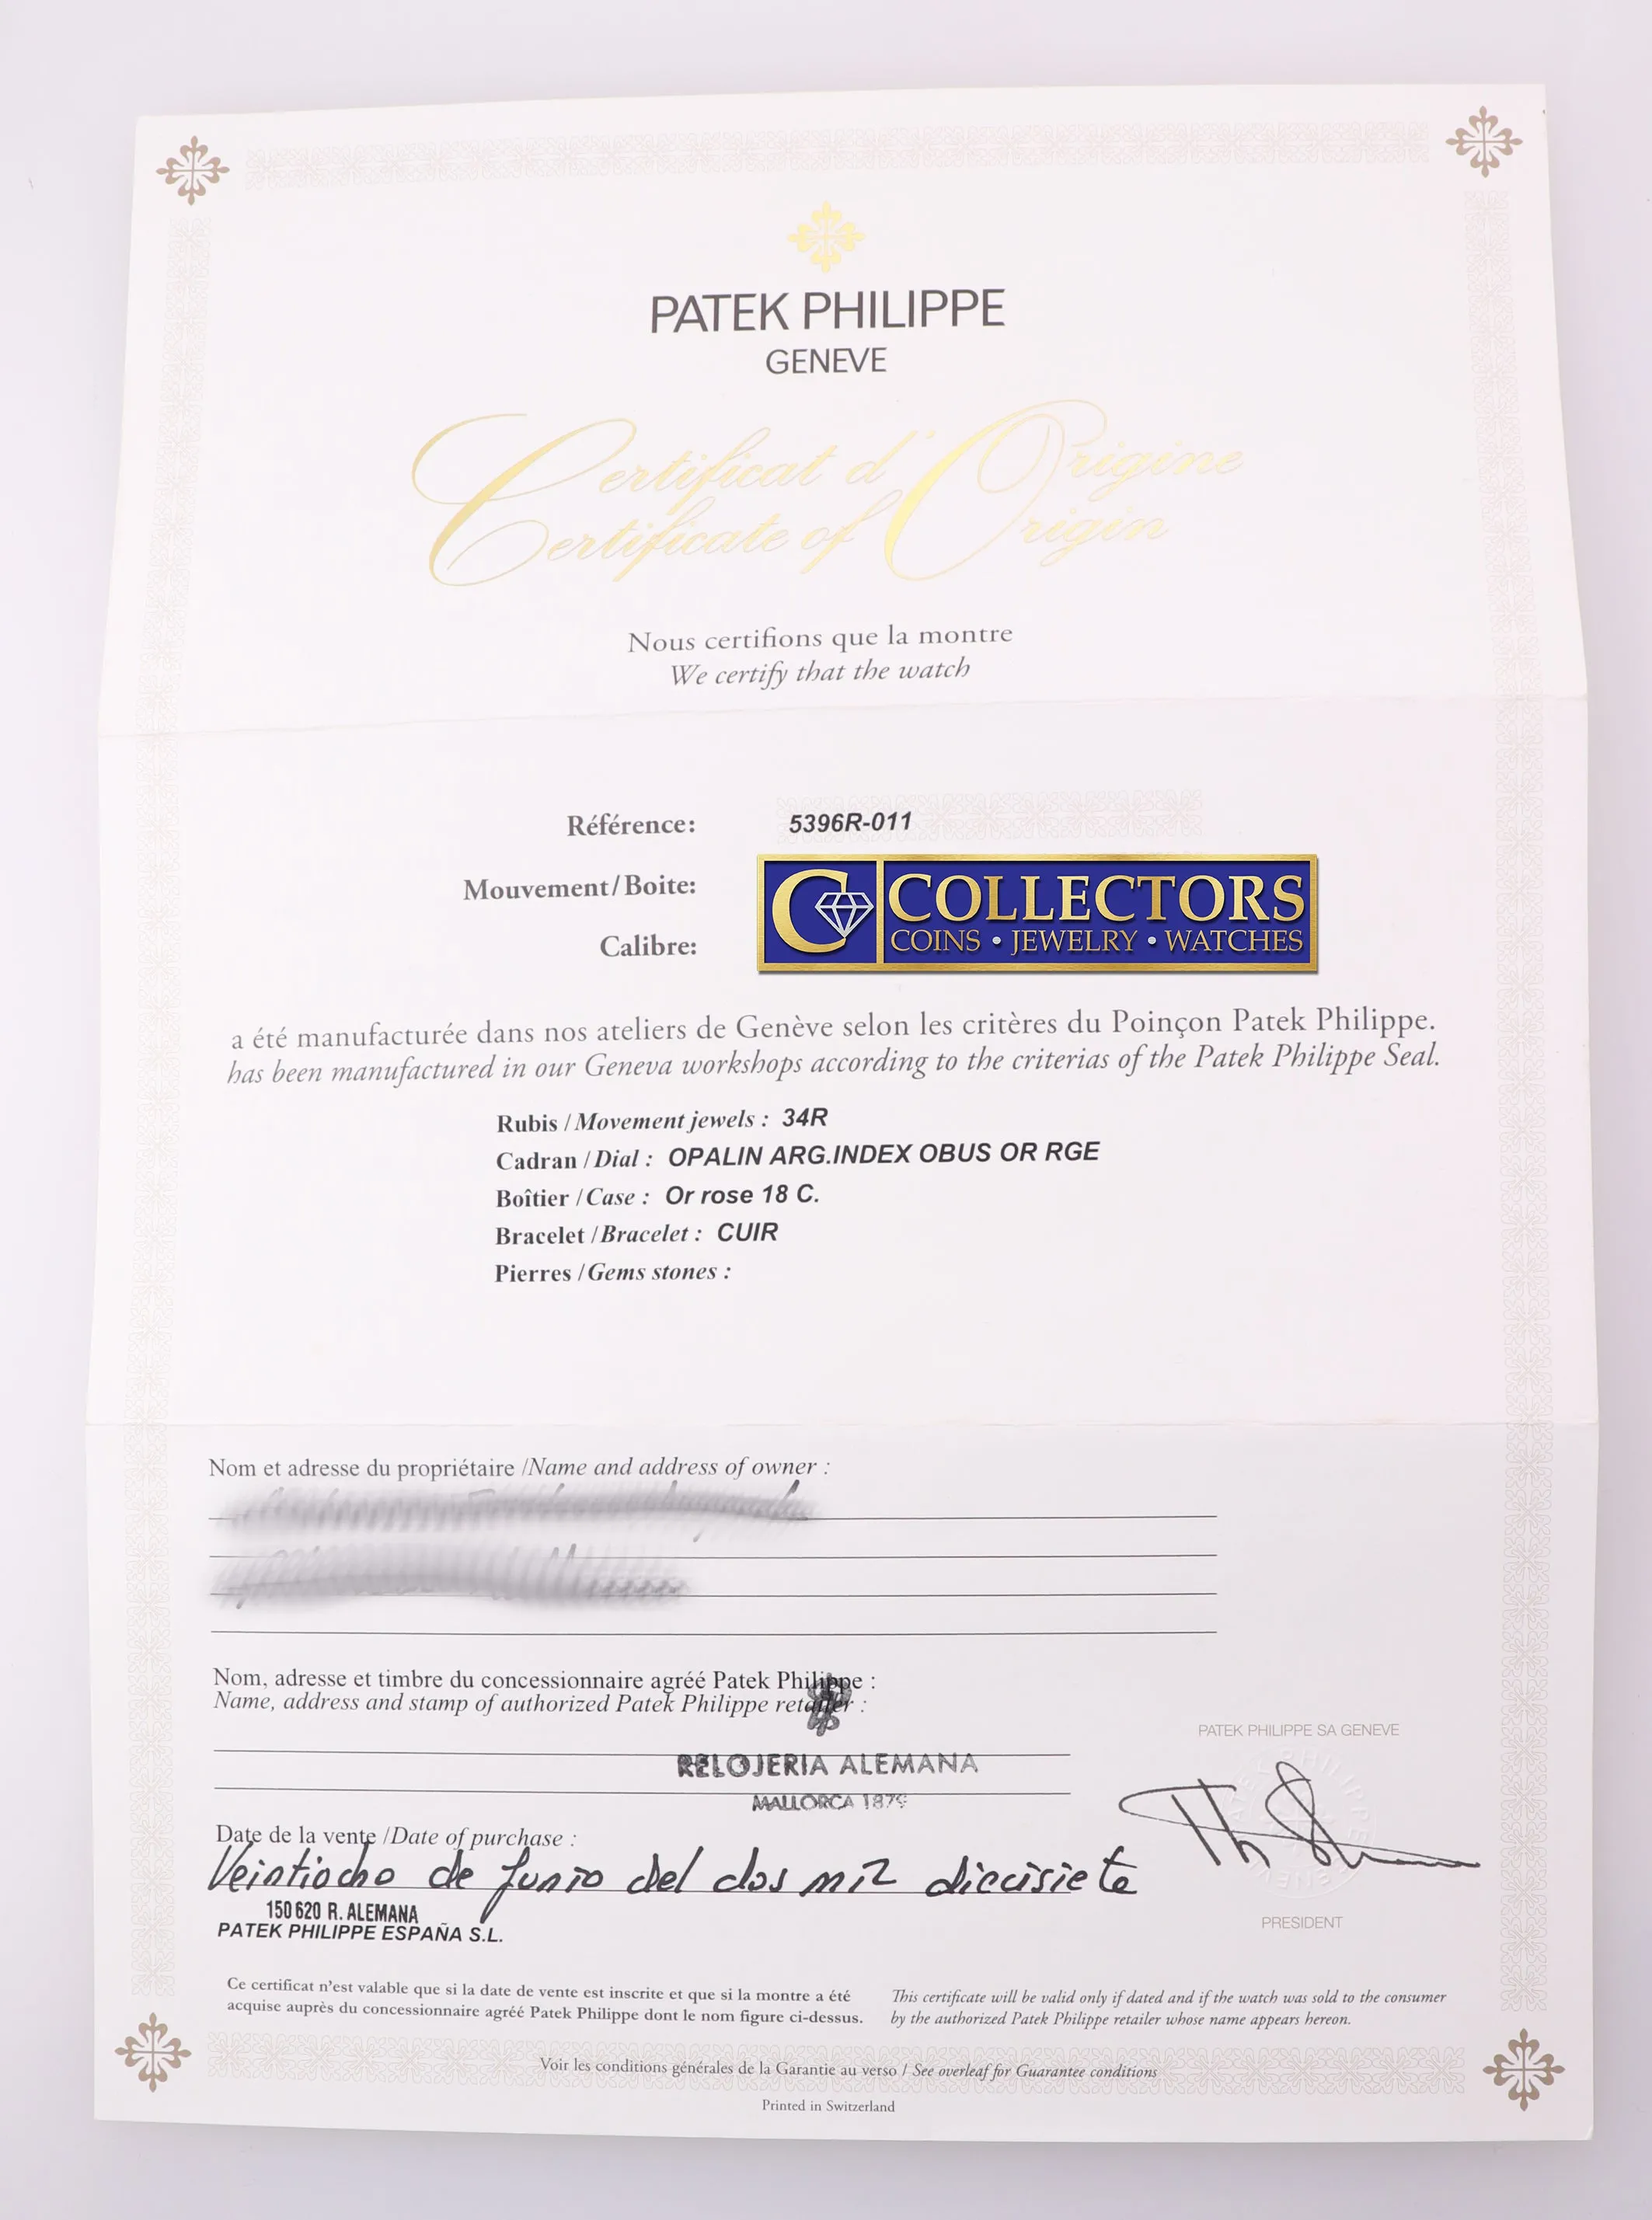 PATEK PHILIPPE
GENEVE
Certificat d'Origine
Certificate of Origin
Nous certifions que la montre
We certify that the watch
Référence: 5396R-011
Mouvement/Boite:
COLLECTORS
COINS • JEWELRY • WATCHES
Calibre:
a été manufacturée dans nos ateliers de Genève selon les critères du Poinçon Patek Philippe.
has been manufactured in our Geneva workshops according to the criterias of the Patek Philippe Seal.
Rubis / Movement jewels : 34R
Cadran / Dial : OPALIN ARG.INDEX OBUS OR RGE
Boîtier / Case : Or rose 18 C.
Bracelet / Bracelet : CUIR
Pierres / Gems stones :
Nom et adresse du propriétaire /Name and address of owner :
Nom, adresse et timbre du concessionnaire agréé Patek Philippe :
Name, address and stamp of authorized Patek Philippe retailer :
PATEK PHILIPPE SA GENEVE
RELOJERIA ALEMANA
MALLORCA 1879
Date de la vente /Date of purchase :
Veintiocho de Junio del dos mil diecisiete
150 620 R. ALEMANA
PATEK PHILIPPE ESPAÑA S.L.
PRESIDENT
Ce certificat n'est valable que si la date de vente est inscrite et que si la montre a été
acquise auprès du concessionnaire agréé Patek Philippe dont le nom figure ci-dessus.
This certificate will be valid only if dated and if the watch was sold to the consumer
by the authorized Patek Philippe retailer whose name appears hereon.
Voir les conditions générales de la Garantie au verso / See overleaf for Guarantee conditions
Printed in Switzerland